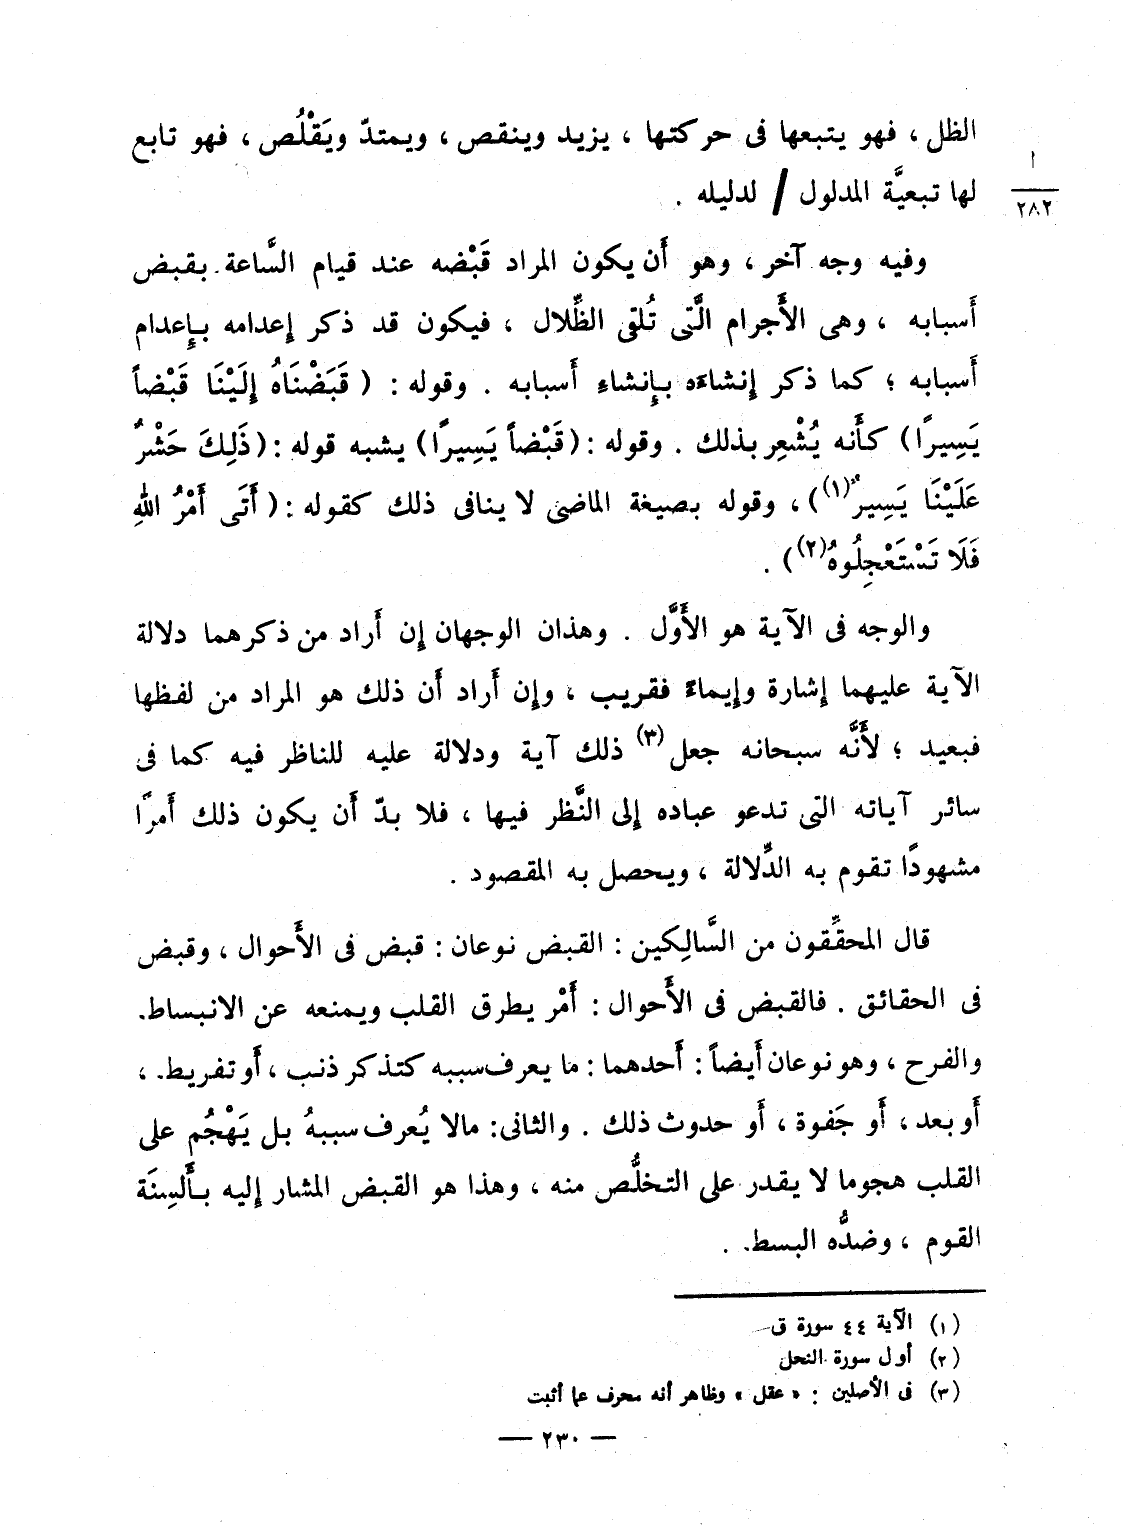 الظل ، فهو يتبعها فى حركتها ، يزيد وينقص ، ويمتدّ ويَقْلُص ، فهو تابع
ا
٢٨٢
لها تبعيَّة المدلول / لدليله .
وفيه وجه آخر ، وهو أَن يكون المراد قَبْضه عند قيام السَّاعة بقبض
أَسبابه ، وهى الأَجرام الَّتى تُلقى الظِّلال ، فيكون قد ذكر إِعدامه بإِعدام
أَسبابه ؛ كما ذكر إِنشاءَه بإِنشاءِ أَسبابه . وقوله : ( قَبَضْنَاهُ إِلَيْنَا قَبْضاً
يَسِيرًا ) كأَنه يُشْعِر بذلك . وقوله : ( قَبْضاً يَسِيرًا ) يشبه قوله : ( ذَلِكَ حَشْرٌ
عَلَيْنَا يَسِيرٌ(١) ) ، وقوله بصيغة الماضى لا ينافى ذلك كقوله : ( أَتَى أَمْرُ اللهِ
فَلَا تَسْتَعْجِلُوهُ(٢) ) .
والوجه فى الآية هو الأَوَّل . وهذان الوجهان إِن أَراد من ذكرهما دلالة
الآية عليهما إِشارة وإِيماءً فقريب ، وإِن أَراد أَن ذلك هو المراد من لفظها
فبعيد ؛ لأَنَّه سبحانه جعل(٣) ذلك آية ودلالة عليه للناظر فيه كما فى
سائر آياته التى تدعو عباده إِلى النَّظر فيها ، فلا بدّ أَن يكون ذلك أَمرًا
مشهودًا تقوم به الدِّلالة ، ويحصل به المقصود .
قال المحقِّقون من السَّالِكين : القبض نوعان : قبض فى الأَحوال ، وقبض
فى الحقائق . فالقبض فى الأَحوال : أَمْر يطرق القلب ويمنعه عن الانبساط
والفرح ، وهو نوعان أَيضاً : أَحدهما : ما يعرف سببه كتذكر ذنب ، أَو تفريط ،
أَو بعد ، أَو جَفوة ، أَو حدوث ذلك . والثانى : مالا يُعرف سببهُ بل يَهْجُم على
القلب هجوما لا يقدر على التخلُّص منه ، وهذا هو القبض المشار إِليه بأَلسِنَة
القوم ، وضدُّه البسط .
(١) الآية ٤٤ سورة ق
(٢) أول سورة النحل
(٣) فى الأصلين : « عقل » وظاهر أنه محرف عما أثبت
— ٢٣٠ —